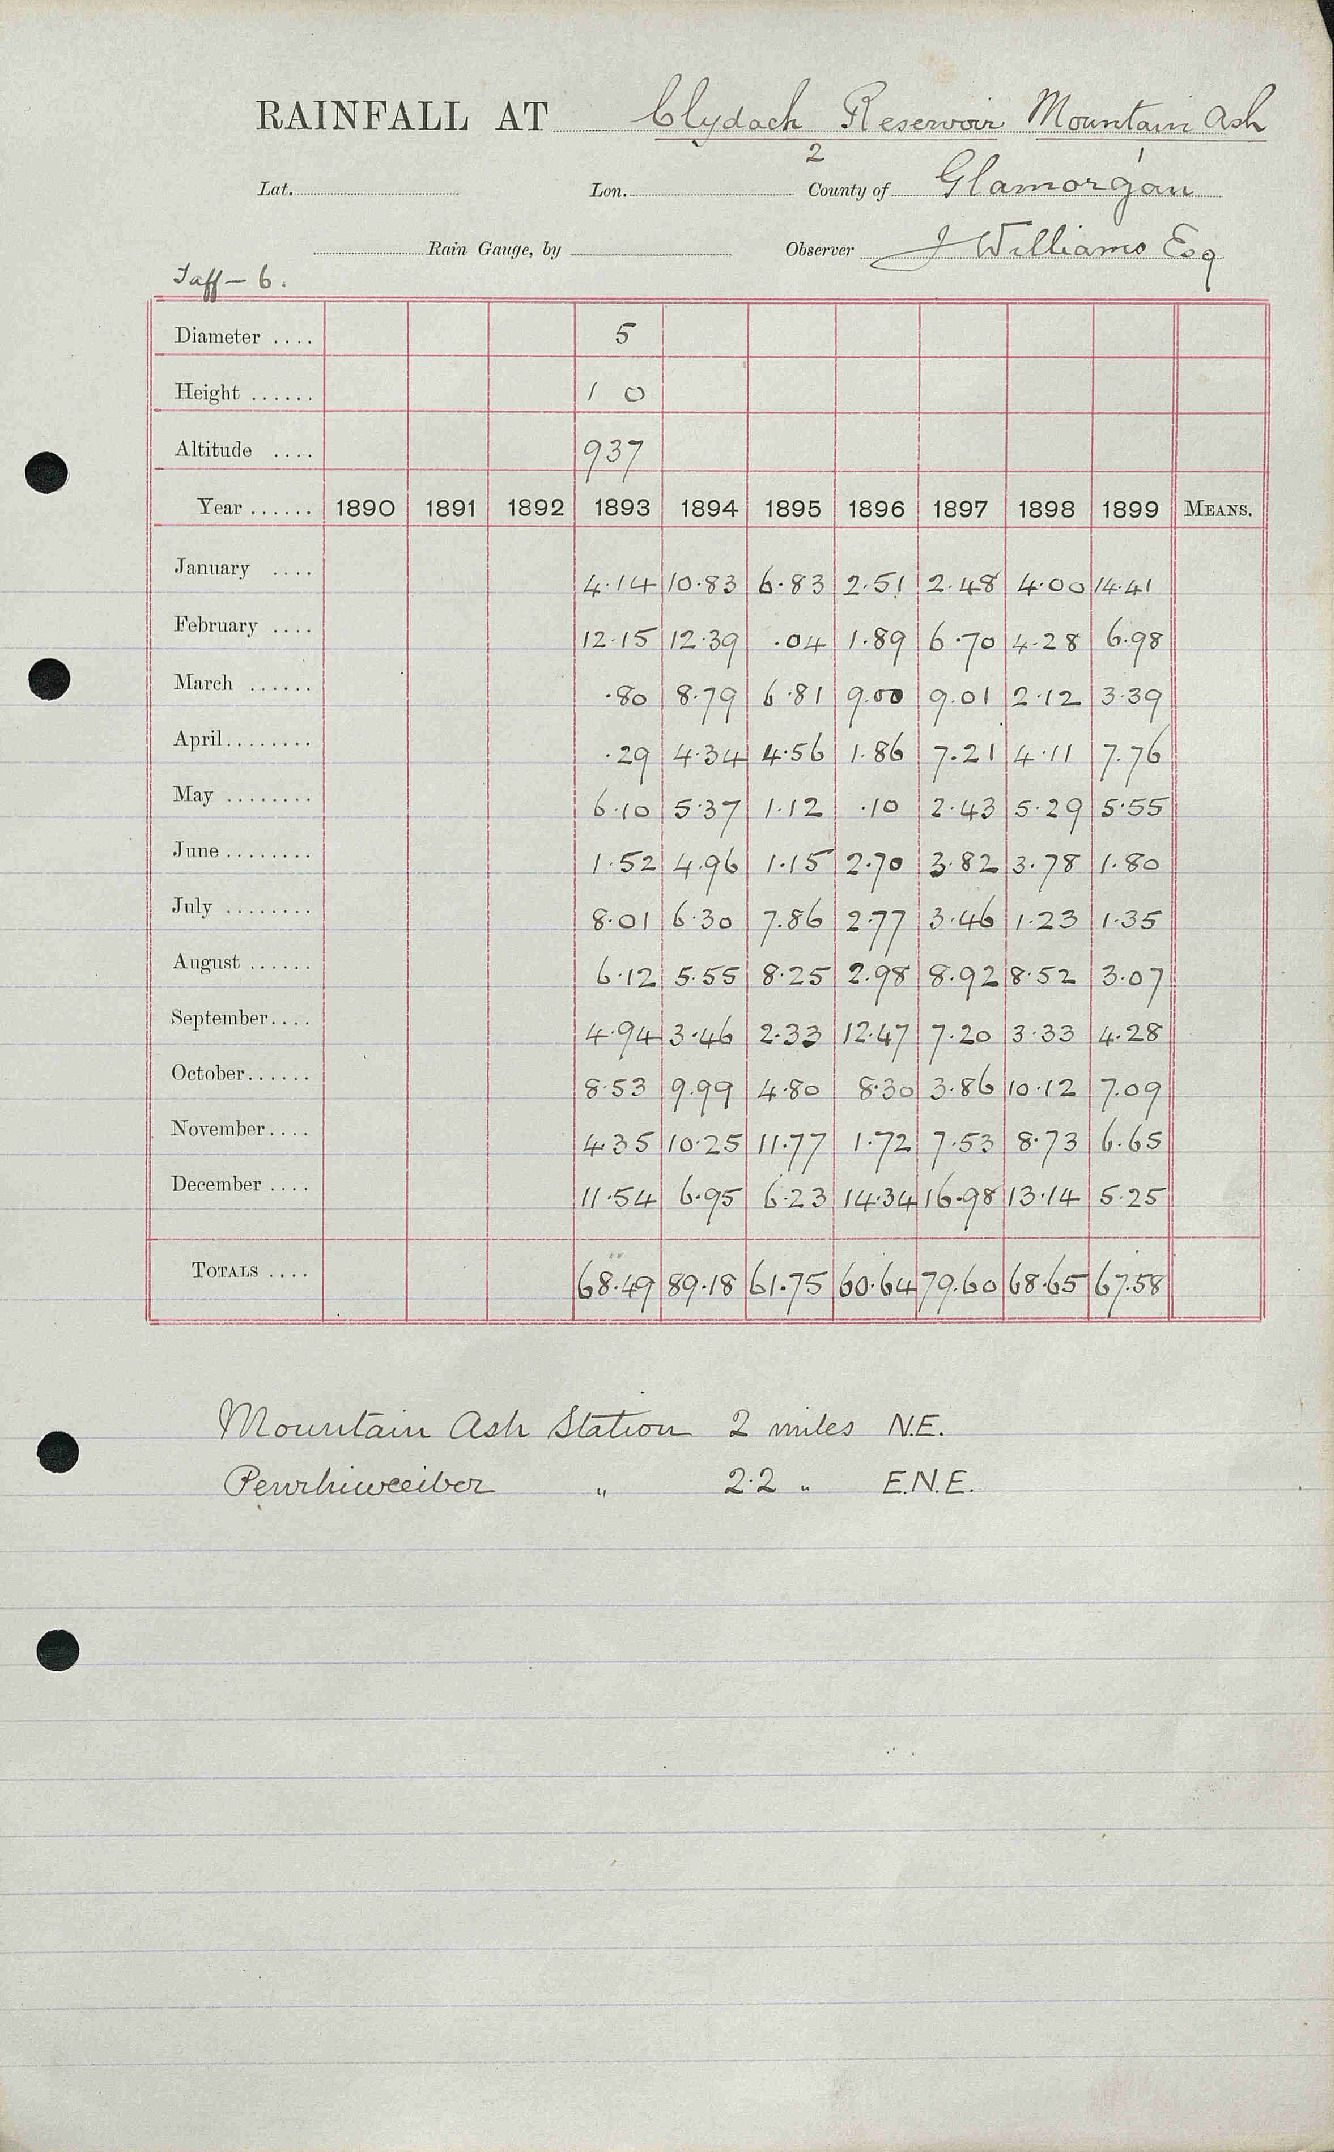 RAINFALL AT Clydach Reservoir Mountain Ash
2 1
Lat. Lon. County of Glamorgan
Rain Gauge, by Observer J Williams Esq
Taff - 6.
Diameter .... 5
Height ...... 1 0
Altitude .... 937
Year ...... 1890 1891 1892 1893 1894 1895 1896 1897 1898 1899 MEANS.
January .... 4.14 10.83 6.83 2.51 2.48 4.00 14.41
February .... 12.15 12.39 .04 1.89 6.70 4.28 6.98
March ...... .80 8.79 6.81 9.00 9.01 2.12 3.39
April........ .29 4.34 4.56 1.86 7.21 4.11 7.76
May ........ 6.10 5.37 1.12 .10 2.43 5.29 5.55
June ........ 1.52 4.96 1.15 2.70 3.82 3.78 1.80
July ........ 8.01 6.30 7.86 2.77 3.46 1.23 1.35
August ...... 6.12 5.55 8.25 2.98 8.92 8.52 3.07
September.... 4.94 3.46 2.33 12.47 7.20 3.33 4.28
October...... 8.53 9.99 4.80 8.30 3.86 10.12 7.09
November.... 4.35 10.25 11.77 1.72 7.53 8.73 6.65
December .... 11.54 6.95 6.23 14.34 16.98 13.14 5.25
TOTALS .... 68.49 89.18 61.75 60.64 79.60 68.65 67.58
Mountain Ash Station 2 miles N.E.
Penrhiwceiber " 2.2 " E.N.E.